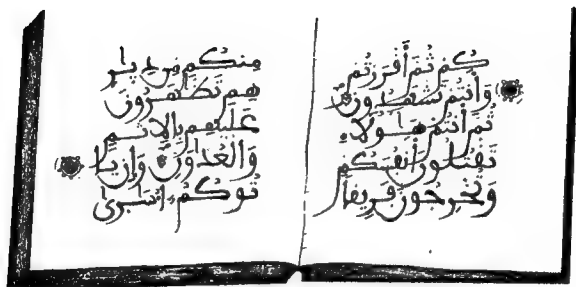 كُمْ ثُمَّ أَقْرَرْتُمْ
وَأَنتُمْ تَشْهَدُونَ
ثُمَّ أَنتُمْ هَؤُلَاءِ
تَقْتُلُونَ أَنفُسَكُمْ
وَتُخْرِجُونَ فَرِيقًا
مِنكُم مِّن دِيَارِ
هِمْ تَظَّهَرُونَ
عَلَيْهِم بِالِاثْمِ
وَالْعُدْوَانِ وَإِنْ يَا
تُوكُمْ أُسَرَى